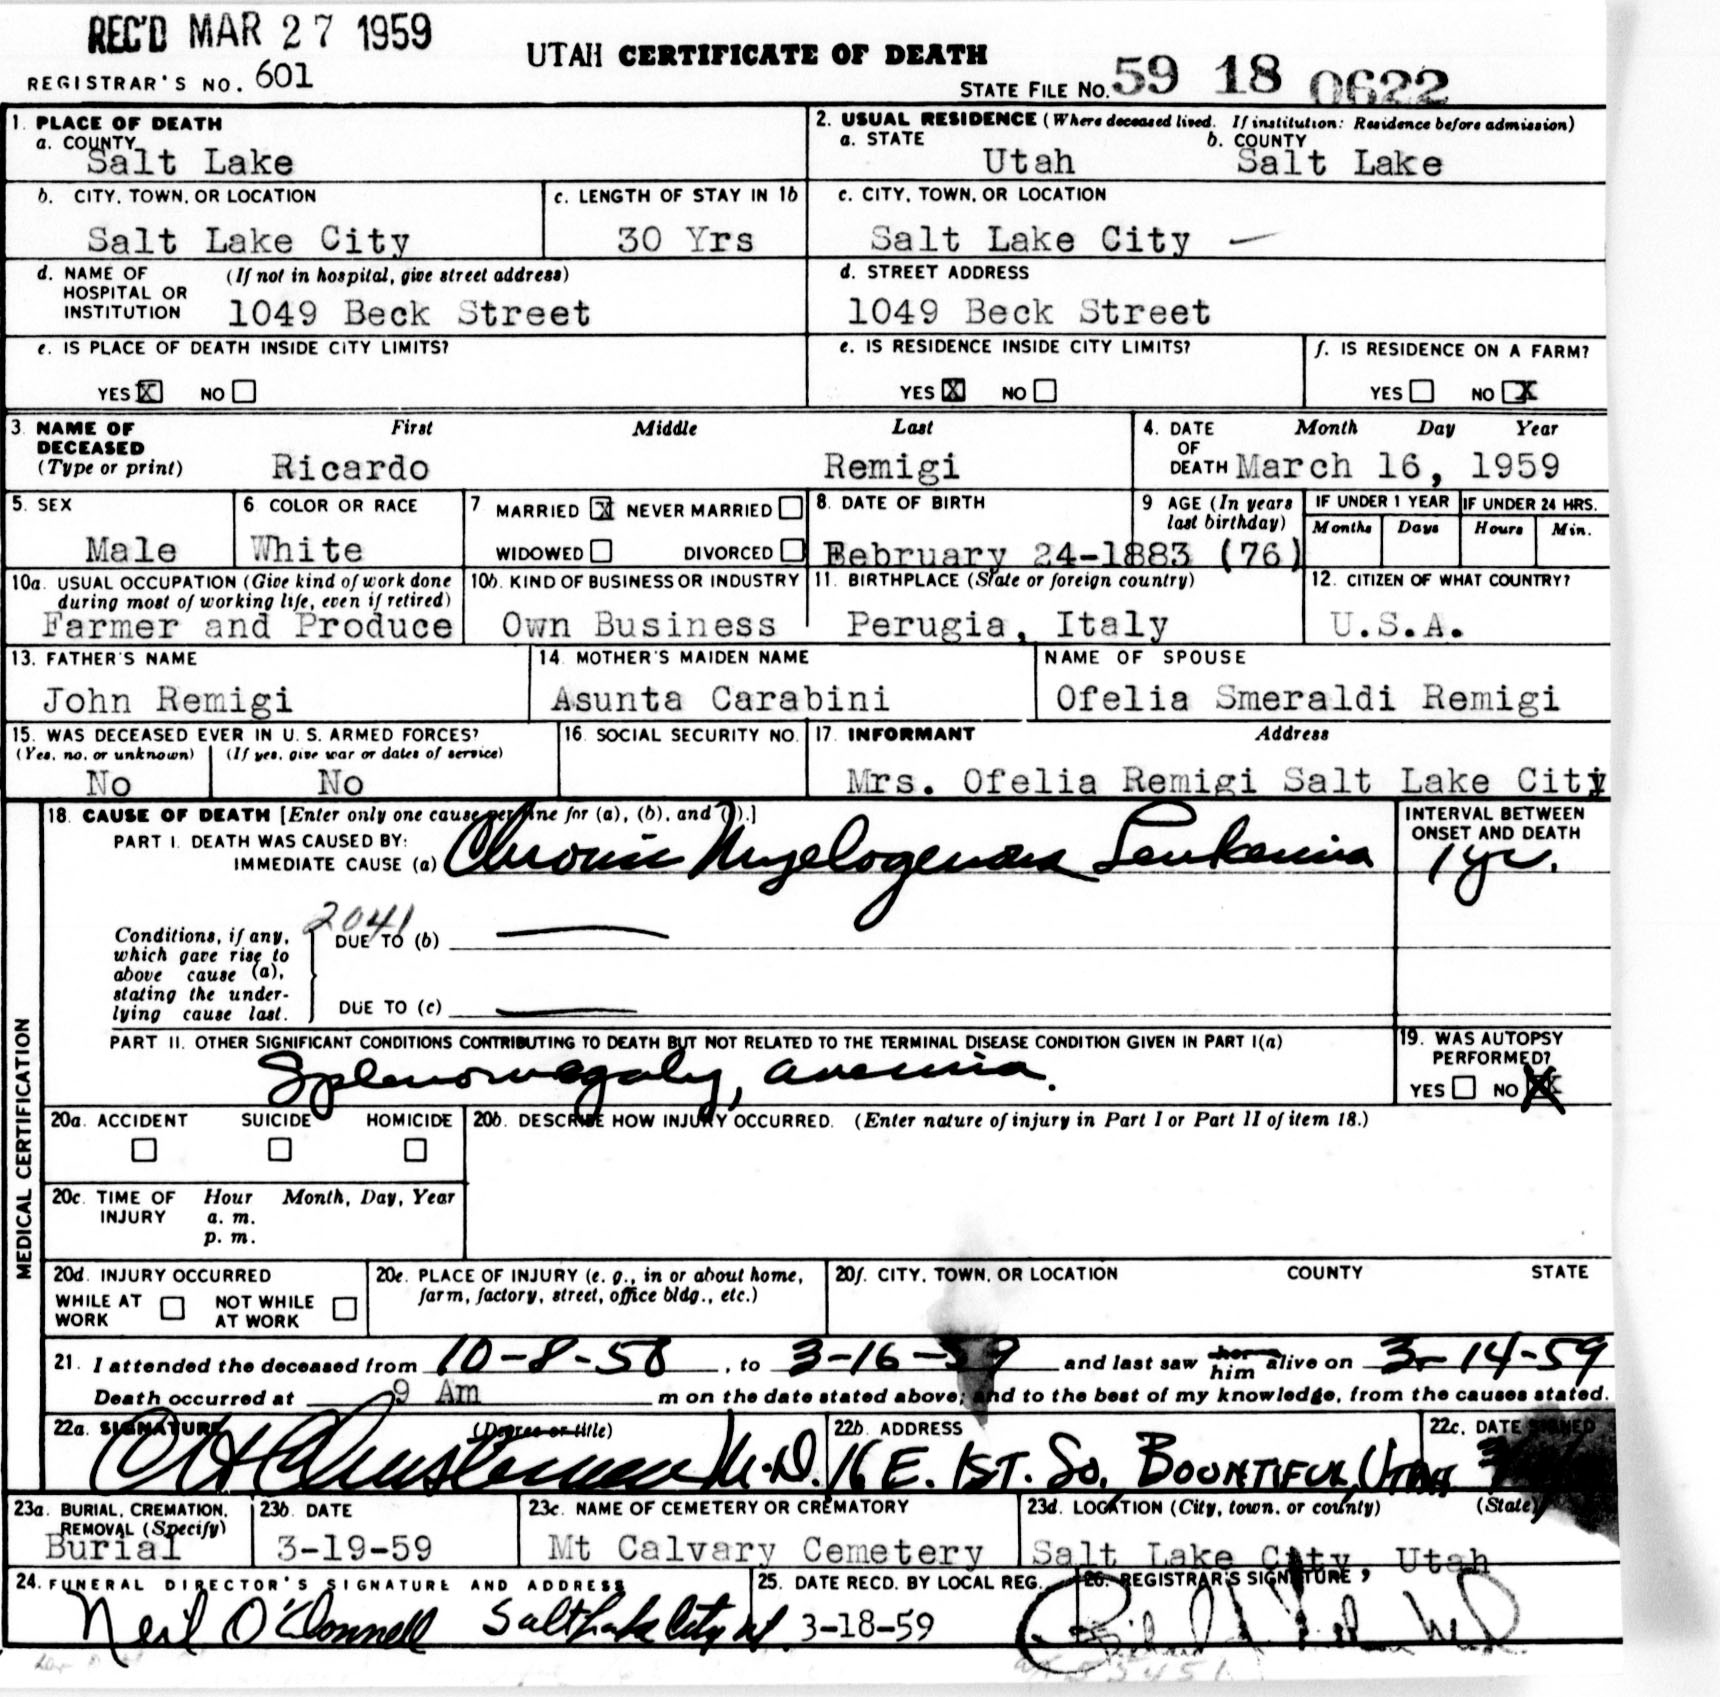 REC'D MAR 27 1959
UTAH CERTIFICATE OF DEATH
REGISTRAR'S NO. 601
STATE FILE NO. 59 18 0622
1. PLACE OF DEATH
a. COUNTY
Salt Lake
2. USUAL RESIDENCE (Where deceased lived. If institution: Residence before admission)
a. STATE b. COUNTY
Utah Salt Lake
b. CITY, TOWN, OR LOCATION
Salt Lake City
c. LENGTH OF STAY IN 1b
30 Yrs
c. CITY, TOWN, OR LOCATION
Salt Lake City
d. NAME OF (If not in hospital, give street address)
HOSPITAL OR
INSTITUTION 1049 Beck Street
d. STREET ADDRESS
1049 Beck Street
e. IS PLACE OF DEATH INSIDE CITY LIMITS?
YES X NO
e. IS RESIDENCE INSIDE CITY LIMITS?
YES X NO
f. IS RESIDENCE ON A FARM?
YES NO X
3. NAME OF First Middle Last
DECEASED
(Type or print) Ricardo Remigi
4. DATE Month Day Year
OF
DEATH March 16, 1959
5. SEX
Male
6 COLOR OR RACE
White
7 MARRIED X NEVER MARRIED
WIDOWED DIVORCED
8. DATE OF BIRTH
February 24-1883 (76)
9 AGE (In years
last birthday)
IF UNDER 1 YEAR IF UNDER 24 HRS.
Months Days Hours Min.
10a. USUAL OCCUPATION (Give kind of work done
during most of working life, even if retired)
Farmer and Produce
10b. KIND OF BUSINESS OR INDUSTRY
Own Business
11. BIRTHPLACE (State or foreign country)
Perugia, Italy
12. CITIZEN OF WHAT COUNTRY?
U.S.A.
13. FATHER'S NAME
John Remigi
14. MOTHER'S MAIDEN NAME
Asunta Carabini
NAME OF SPOUSE
Ofelia Smeraldi Remigi
15. WAS DECEASED EVER IN U. S. ARMED FORCES?
(Yes, no, or unknown) (If yes, give war or dates of service)
No No
16. SOCIAL SECURITY NO.
17. INFORMANT Address
Mrs. Ofelia Remigi Salt Lake City
18. CAUSE OF DEATH [Enter only one cause per line for (a), (b), and (c).]
PART I. DEATH WAS CAUSED BY:
IMMEDIATE CAUSE (a) Chronic Myelogenous Leukemia
INTERVAL BETWEEN
ONSET AND DEATH
1 yr.
2041
Conditions, if any,
which gave rise to
above cause (a),
stating the under-
lying cause last.
DUE TO (b)
DUE TO (c)
PART II. OTHER SIGNIFICANT CONDITIONS CONTRIBUTING TO DEATH BUT NOT RELATED TO THE TERMINAL DISEASE CONDITION GIVEN IN PART I(a)
Splenomegaly, anemia.
19. WAS AUTOPSY
PERFORMED?
YES NO X
MEDICAL CERTIFICATION
20a. ACCIDENT SUICIDE HOMICIDE
20b. DESCRIBE HOW INJURY OCCURRED. (Enter nature of injury in Part I or Part II of item 18.)
20c. TIME OF Hour Month, Day, Year
INJURY a. m.
p. m.
20d. INJURY OCCURRED
WHILE AT NOT WHILE
WORK AT WORK
20e. PLACE OF INJURY (e. g., in or about home,
farm, factory, street, office bldg., etc.)
20f. CITY, TOWN, OR LOCATION COUNTY STATE
21. I attended the deceased from 10-8-58, to 3-16-59 and last saw her him alive on 3-14-59
Death occurred at 9 Am m on the date stated above; and to the best of my knowledge, from the causes stated.
22a. SIGNATURE (Degree or title)
M.D.
22b. ADDRESS
16 E. 1ST. So. BOUNTIFUL, UTAH
22c. DATE SIGNED
23a. BURIAL, CREMATION,
REMOVAL (Specify)
Burial
23b. DATE
3-19-59
23c. NAME OF CEMETERY OR CREMATORY
Mt Calvary Cemetery
23d. LOCATION (City, town, or county) (State)
Salt Lake City, Utah
24. FUNERAL DIRECTOR'S SIGNATURE AND ADDRESS
Neil O'Donnell Salt Lake City Ut.
25. DATE RECD. BY LOCAL REG.
3-18-59
26. REGISTRAR'S SIGNATURE